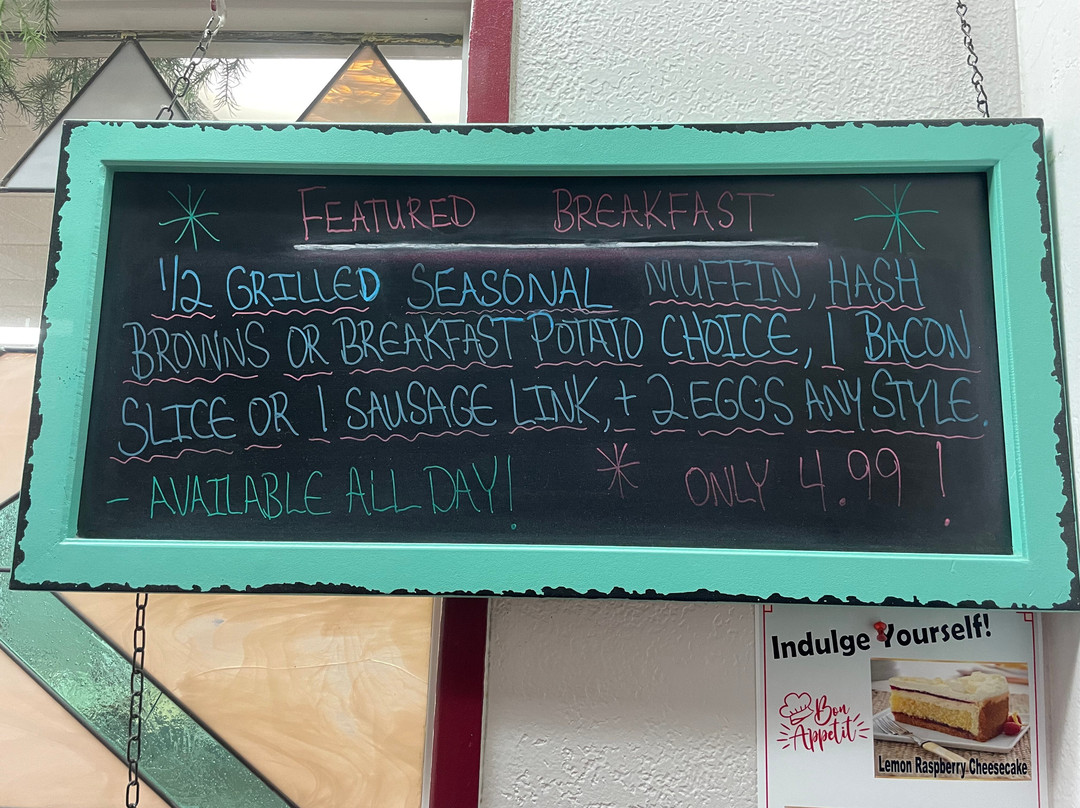 FEATURED BREAKFAST
1/2 GRILLED SEASONAL MUFFIN, HASH
BROWNS OR BREAKFAST POTATO CHOICE, 1 BACON
SLICE OR 1 SAUSAGE LINK, + 2 EGGS ANY STYLE.
- AVAILABLE ALL DAY! * ONLY 4.99!
Indulge Yourself!
Bon
Appetit
Lemon Raspberry Cheesecake